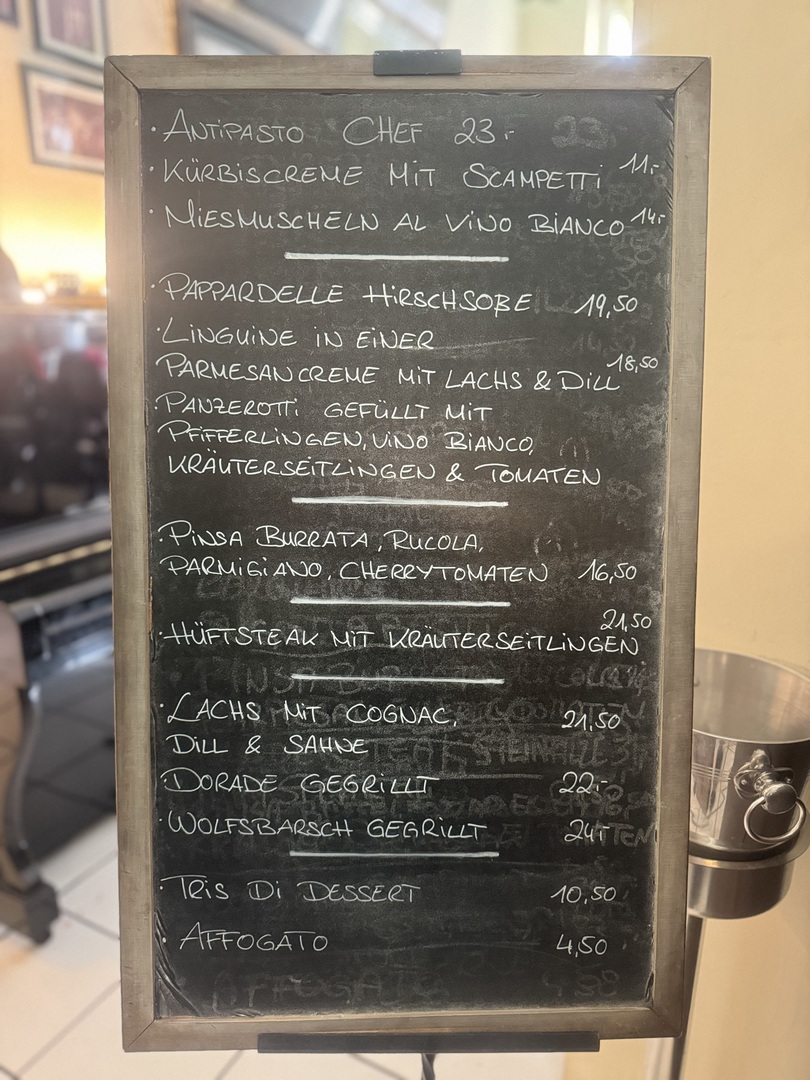 · ANTIPASTO CHEF 23.-
· KÜRBISCREME MIT SCAMPETTI 11.-
· MIESMUSCHELN AL VINO BIANCO 14.-
· PAPPARDELLE HIRSCHSOßE 19,50
· LINGUINE IN EINER
PARMESANCREME MIT LACHS & DILL 18,50
· PANZEROTTI GEFÜLLT MIT
PFIFFERLINGEN, VINO BIANCO,
KRÄUTERSEITLINGEN & TOMATEN
· PINSA BURRATA, RUCOLA,
PARMIGIANO, CHERRYTOMATEN 16,50
· HÜFTSTEAK MIT KRÄUTERSEITLINGEN 21,50
· LACHS MIT COGNAC, 21,50
DILL & SAHNE
· DORADE GEGRILLT 22.-
· WOLFSBARSCH GEGRILLT 24.-
· TRIS DI DESSERT 10,50
· AFFOGATO 4,50